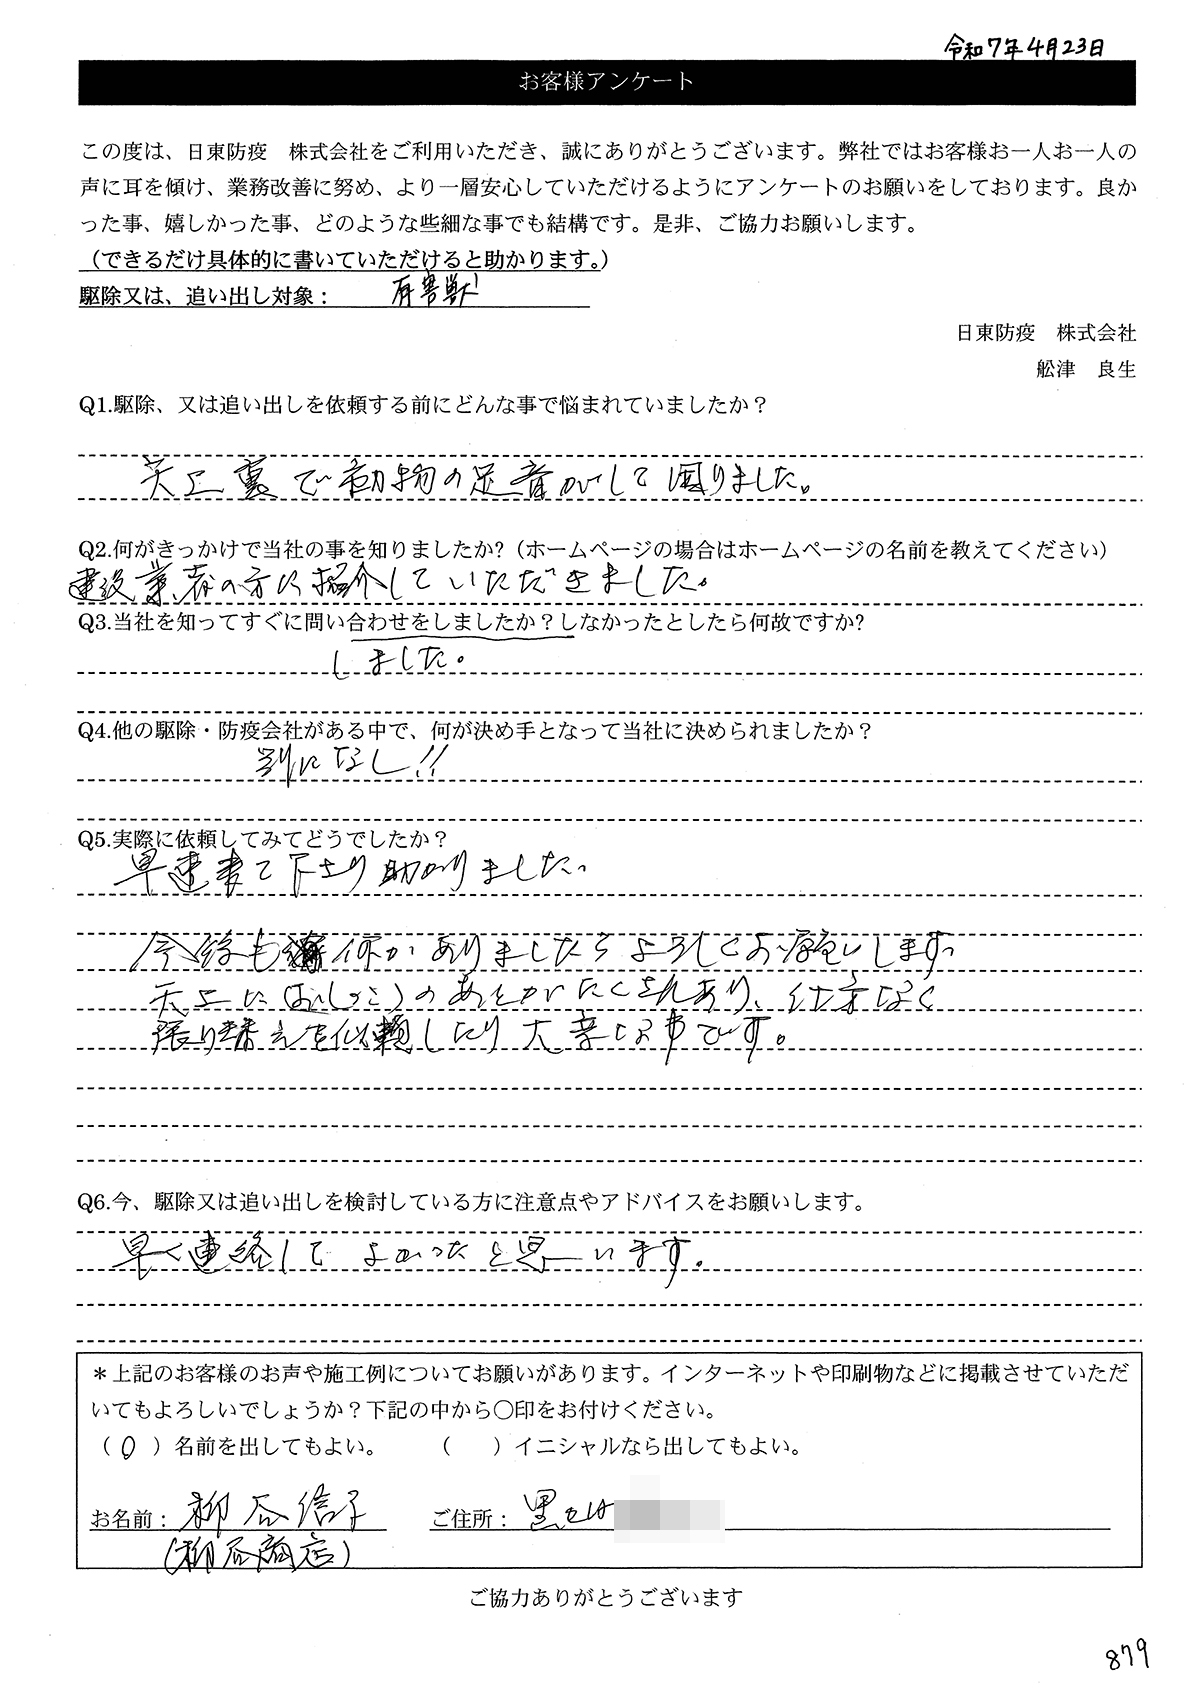 令和7年4月23日
お客様アンケート
この度は、日東防疫　株式会社をご利用いただき、誠にありがとうございます。弊社ではお客様お一人お一人の
声に耳を傾け、業務改善に努め、より一層安心していただけるようにアンケートのお願いをしております。良か
った事、嬉しかった事、どのような些細な事でも結構です。是非、ご協力お願いします。
（できるだけ具体的に書いていただけると助かります。）
駆除又は、追い出し対象： 有害獣
日東防疫　株式会社
舩津　良生
Q1.駆除、又は追い出しを依頼する前にどんな事で悩まれていましたか？
天上裏で動物の足音がして困りました。
Q2.何がきっかけで当社の事を知りましたか?（ホームページの場合はホームページの名前を教えてください）
建設業者の方に紹介していただきました。
Q3.当社を知ってすぐに問い合わせをしましたか？しなかったとしたら何故ですか?
しました。
Q4.他の駆除・防疫会社がある中で、何が決め手となって当社に決められましたか？
別になし!!
Q5.実際に依頼してみてどうでしたか？
早速来て下さり助かりました。
今後も何かありましたらよろしくお願いします。
天上に(おしっこ)のあとがたくさんあり、仕方なく
張り替えを依頼したり大変な事です。
Q6.今、駆除又は追い出しを検討している方に注意点やアドバイスをお願いします。
早く連絡してよかったと思います。
＊上記のお客様のお声や施工例についてお願いがあります。インターネットや印刷物などに掲載させていただ
いてもよろしいでしょうか？下記の中から〇印をお付けください。
（ 〇 ）名前を出してもよい。　（　　）イニシャルなら出してもよい。
お名前： 柳谷信子　ご住所：
(柳谷商店)
ご協力ありがとうございます
879